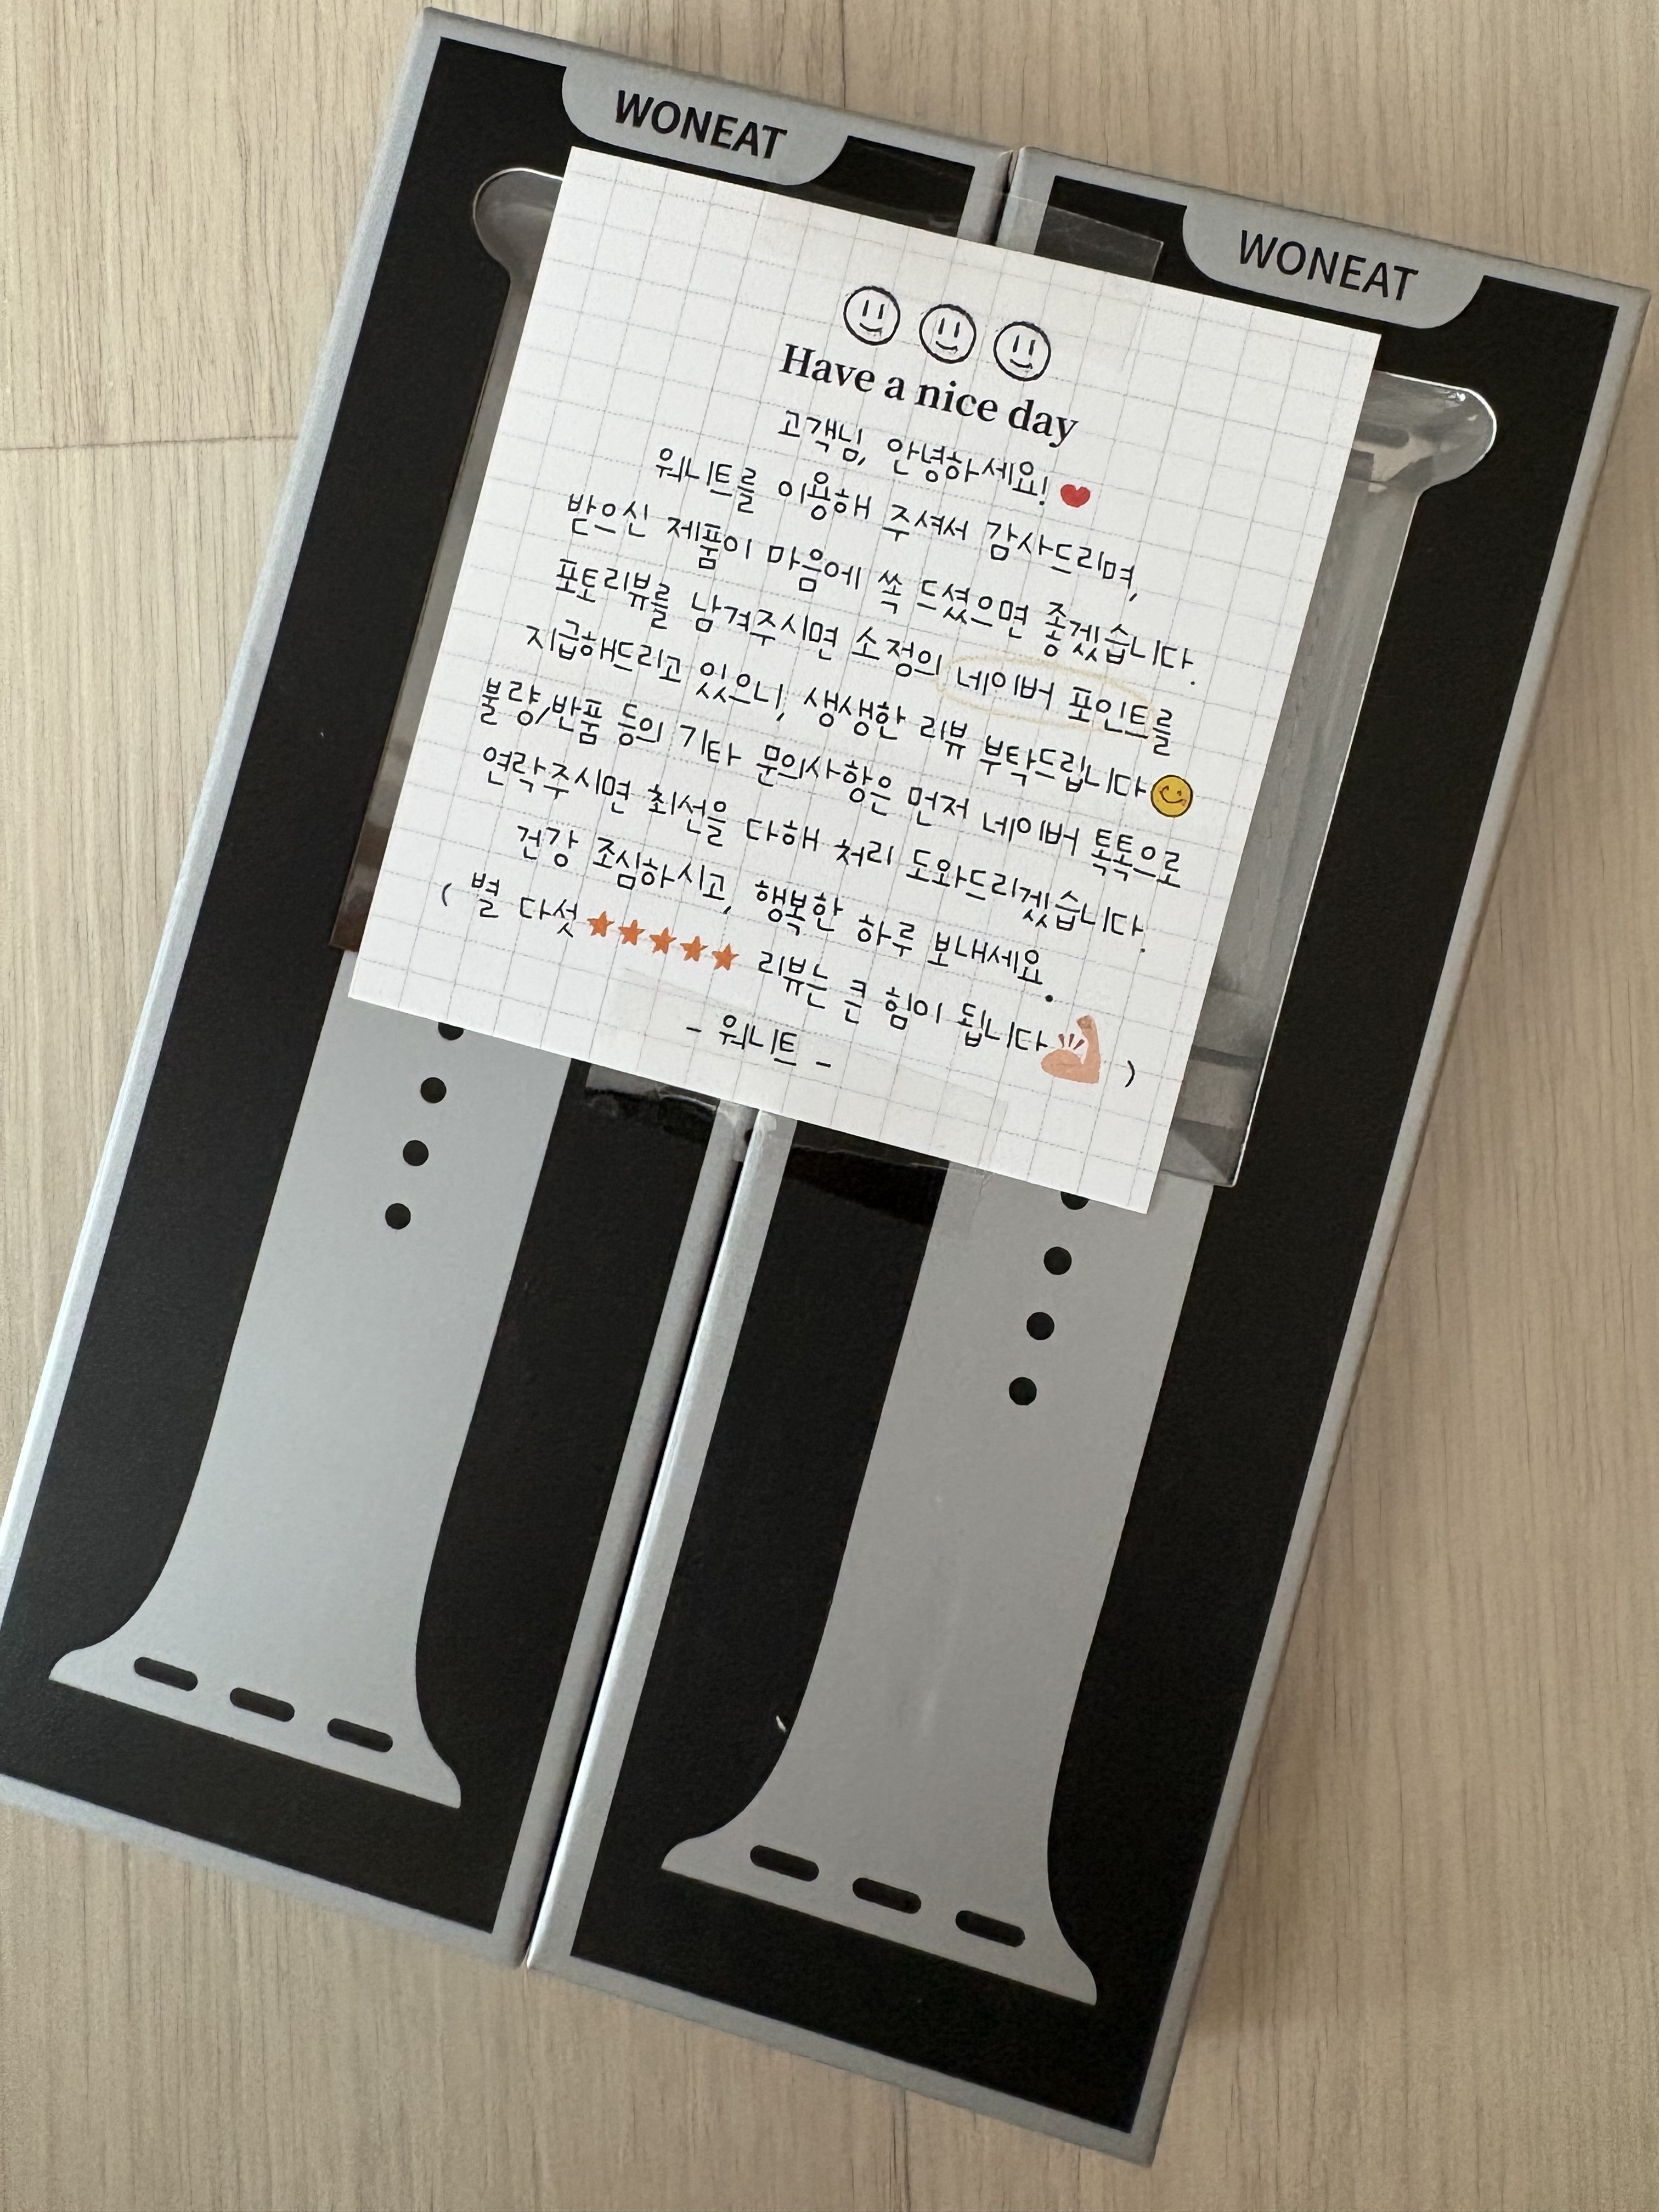 WONEAT
WONEAT
Have a nice day
고객님, 안녕하세요!
워니트를 이용해 주셔서 감사드리며,
받으신 제품이 마음에 쏙 드셨으면 좋겠습니다.
포토리뷰를 남겨주시면 소정의 네이버 포인트를
지급해드리고 있으니, 생생한 리뷰 부탁드립니다
불량/반품 등의 기타 문의사항은 먼저 네이버 톡톡으로
연락주시면 최선을 다해 처리 도와드리겠습니다.
건강 조심하시고, 행복한 하루 보내세요.
( 별 다섯★★★★★ 리뷰는 큰 힘이 됩니다 )
- 워니트 -